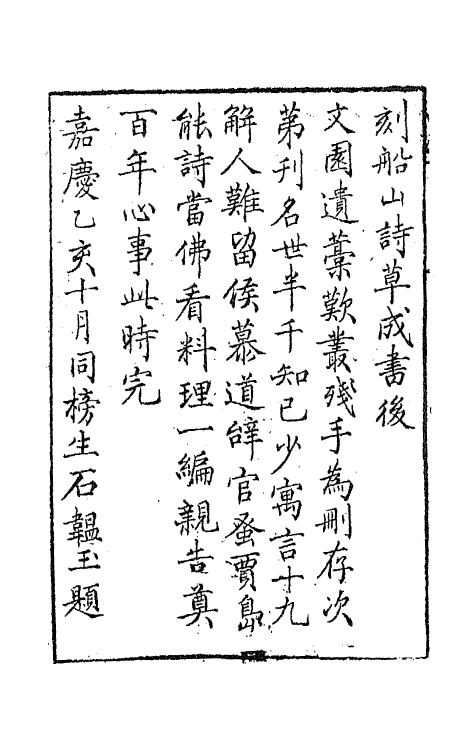 刻船山詩草成書後
文園遺藁歎叢殘手為刪存次
第刊名世半千知己少寓言十九
解人難留侯慕道辭官蚤賈島
能詩當佛看料理一編親告奠
百年心事此時完
嘉慶乙亥十月同榜生石韞玉題